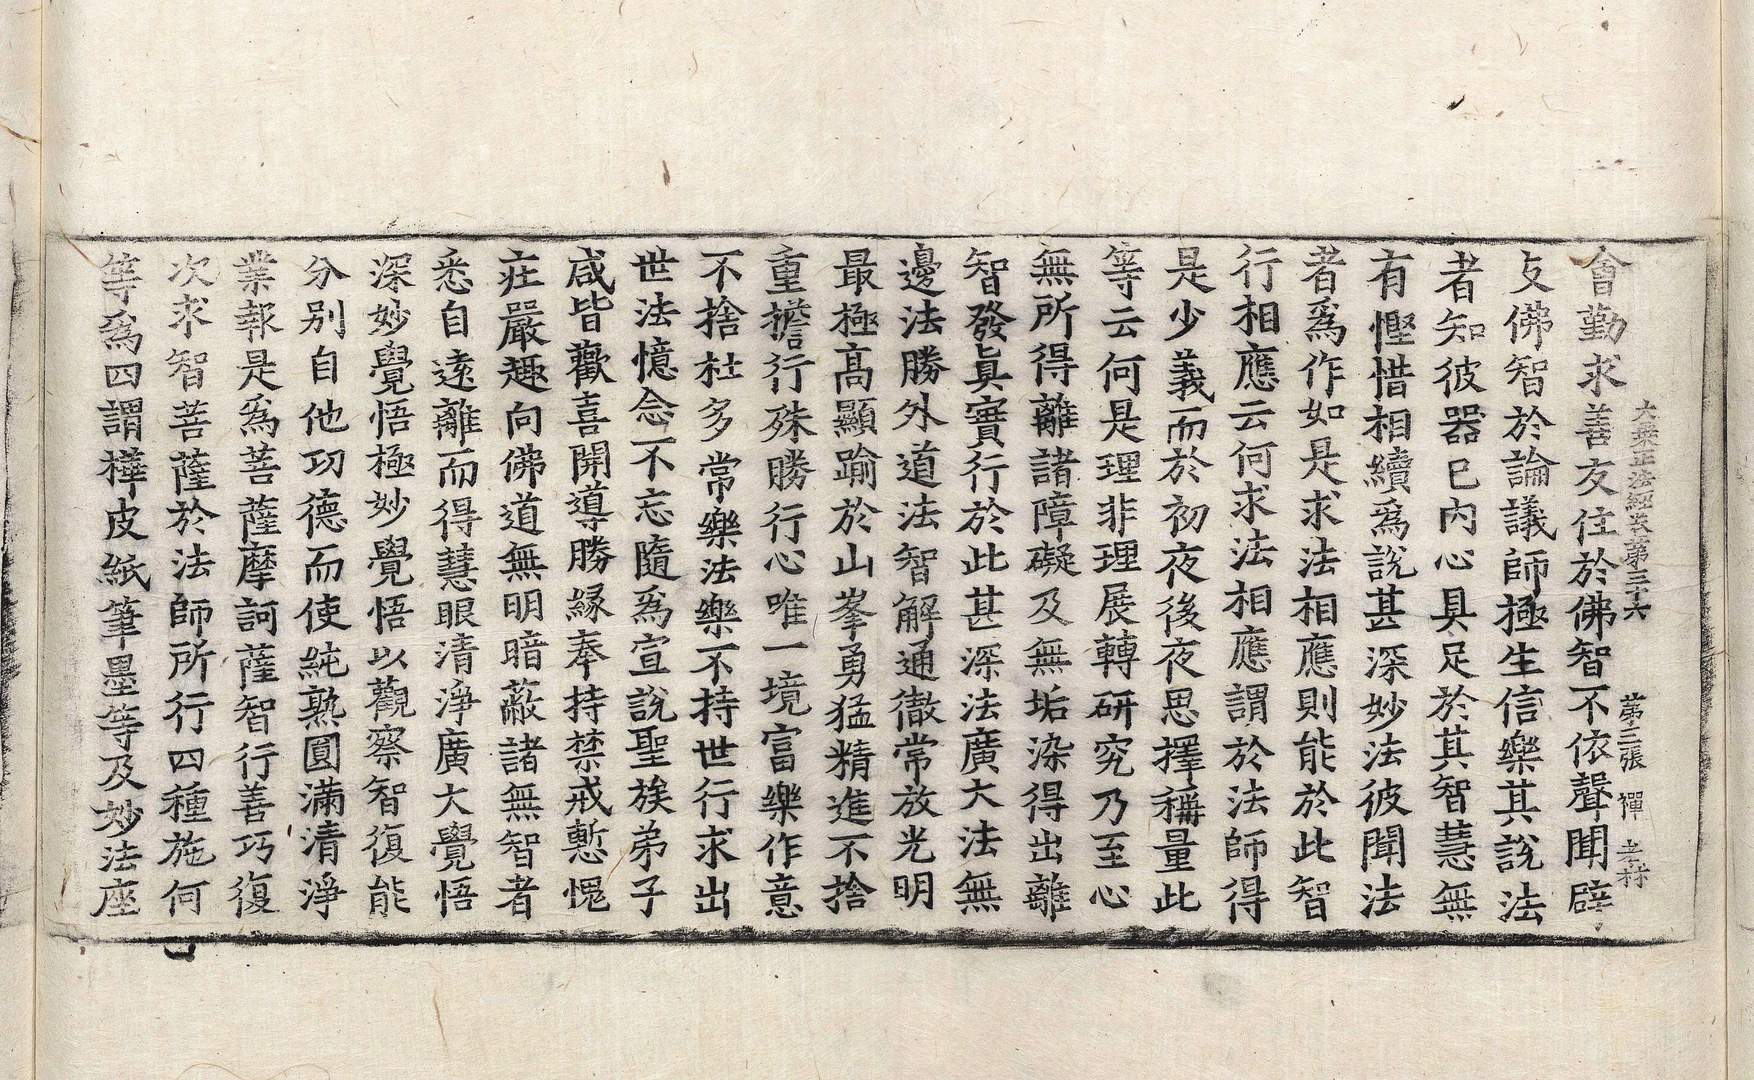 大乗正法經卷第三十六　第三張　禪
會勤求善友住於佛智不依聲聞辟
支佛智於論議師極生信樂其說法
者知彼器已內心具足於其智慧無
有慳惜相續爲說甚深妙法彼聞法
者爲作如是求法相應則能於此智
行相應云何求法相應謂於法師得
是少義而於初夜後夜思擇稱量此
等云何是理非理展轉研究乃至心
無所得離諸障礙及無垢染得出離
智發眞實行於此甚深法廣大法無
邊法勝外道法智解通徹常放光明
最極高顯踰於山峯勇猛精進不捨
重擔行殊勝行心唯一境富樂作意
不捨杜多常樂法樂不持世行求出
世法憶念不忘隨爲宣說聖族弟子
咸皆歡喜開導勝緣奉持禁戒慙愧
莊嚴趣向佛道無明暗蔽諸無智者
悉自遠離而得慧眼清淨廣大覺悟
深妙覺悟極妙覺悟以觀察智復能
分別自他功德而使純熟圓滿清淨
業報是爲菩薩摩訶薩智行善巧復
次求智菩薩於法師所行四種施何
等爲四謂樺皮紙筆墨等及妙法座